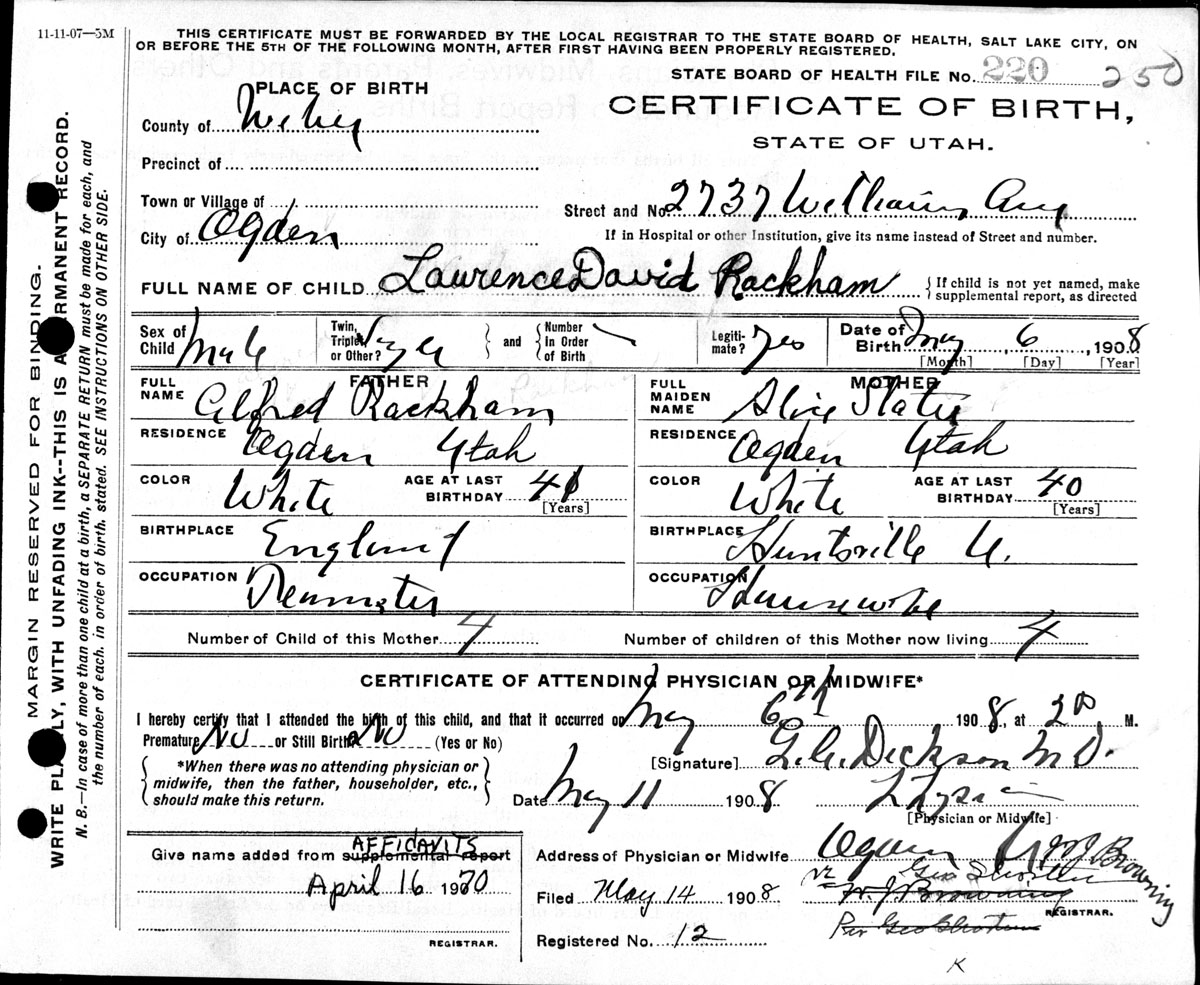 11-11-07—5M
THIS CERTIFICATE MUST BE FORWARDED BY THE LOCAL REGISTRAR TO THE STATE BOARD OF HEALTH, SALT LAKE CITY, ON
OR BEFORE THE 5TH OF THE FOLLOWING MONTH, AFTER FIRST HAVING BEEN PROPERLY REGISTERED.
STATE BOARD OF HEALTH FILE No. 220 250
PLACE OF BIRTH
CERTIFICATE OF BIRTH,
STATE OF UTAH.
County of Weber
Precinct of
Town or Village of
Street and No. 2737 William Ave
City of Ogden
If in Hospital or other Institution, give its name instead of Street and number.
FULL NAME OF CHILD Lawrence David Rackham
If child is not yet named, make supplemental report, as directed
Sex of Child Male
Twin, Triplet or Other?
and
Number in Order of Birth
Legitimate? Yes
Date of Birth May 6, 1908
[Month] [Day] [Year]
FATHER
FULL NAME Alfred Rackham
RESIDENCE Ogden Utah
COLOR White
AGE AT LAST BIRTHDAY 41
[Years]
BIRTHPLACE England
OCCUPATION Teamster
MOTHER
FULL MAIDEN NAME Alice Slater
RESIDENCE Ogden Utah
COLOR White
AGE AT LAST BIRTHDAY 40
[Years]
BIRTHPLACE Huntsville U.
OCCUPATION Housewife
Number of Child of this Mother 4
Number of children of this Mother now living 4
CERTIFICATE OF ATTENDING PHYSICIAN OR MIDWIFE*
I hereby certify that I attended the birth of this child, and that it occurred on May 6th 1908, at 2 M.
Premature No or Still Birth No (Yes or No)
*When there was no attending physician or
midwife, then the father, householder, etc.,
should make this return.
[Signature] Dickson M D.
Date May 11 1908
[Physician or Midwife]
Give name added from supplemental report
AFFIDAVITS
April 16 1970
REGISTRAR.
Address of Physician or Midwife Ogden
Filed May 14 1908
W. J. Browning
REGISTRAR.
Per Geo Shorten
Registered No. 12
K
MARGIN RESERVED FOR BINDING.
WRITE PLAINLY, WITH UNFADING INK--THIS IS A PERMANENT RECORD.
N. B.—In case of more than one child at a birth, a SEPARATE RETURN must be made for each, and
the number of each, in order of birth, stated. SEE INSTRUCTIONS ON OTHER SIDE.